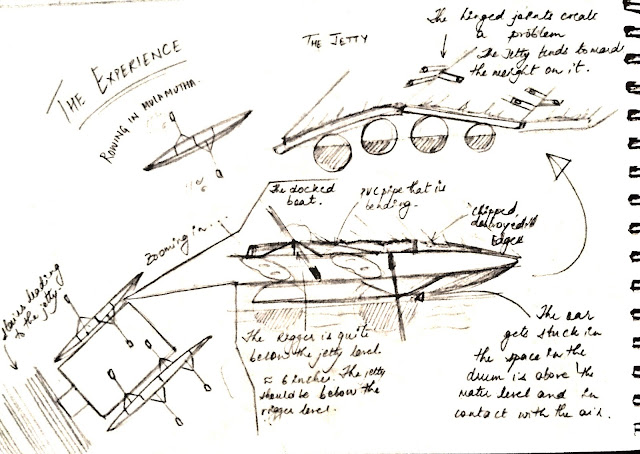 The hinged joints create
a problem
The Jetty tends toward
the weight on it.
THE JETTY
THE EXPERIENCE
ROWING IN MULAMUTHA.
The docked
boat.
PVC pipe that is
bending.
Chipped,
destroyed
edges
Zooming in....
Stairs leading
to the jetty
The Rigger is quite
below the jetty level.
≈ 6 inches. The jetty
should be below the
rigger level.
The oar
gets stuck in
the space in the
drum is above the
water level and in
contact with the air.